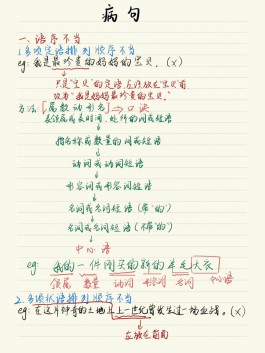 病句
一、语序不当
1.多项定语排列顺序不当
eg: 我是最珍贵的妈妈的宝贝。(×)
只是"宝贝"的定语,应该放在"宝贝"前
改为"我是妈妈最珍贵的宝贝。"
方法:[属数动形名] ⇒ 口诀
表领属或表时间、处所的词或短语
指名称或数量的词或短语
动词或动词短语
形容词或形容词短语
名词或名词短语(带"的")
名词或名词短语(不带"的")
中心语
eg: 我的一件刚买的新的羊毛大衣
领属 数量 动词 形容词 名词 中心语
2.多项状语排列顺序不当
eg: 在这片神奇的土地上上一世纪曾发生过一场血战。(×)
应放在前面